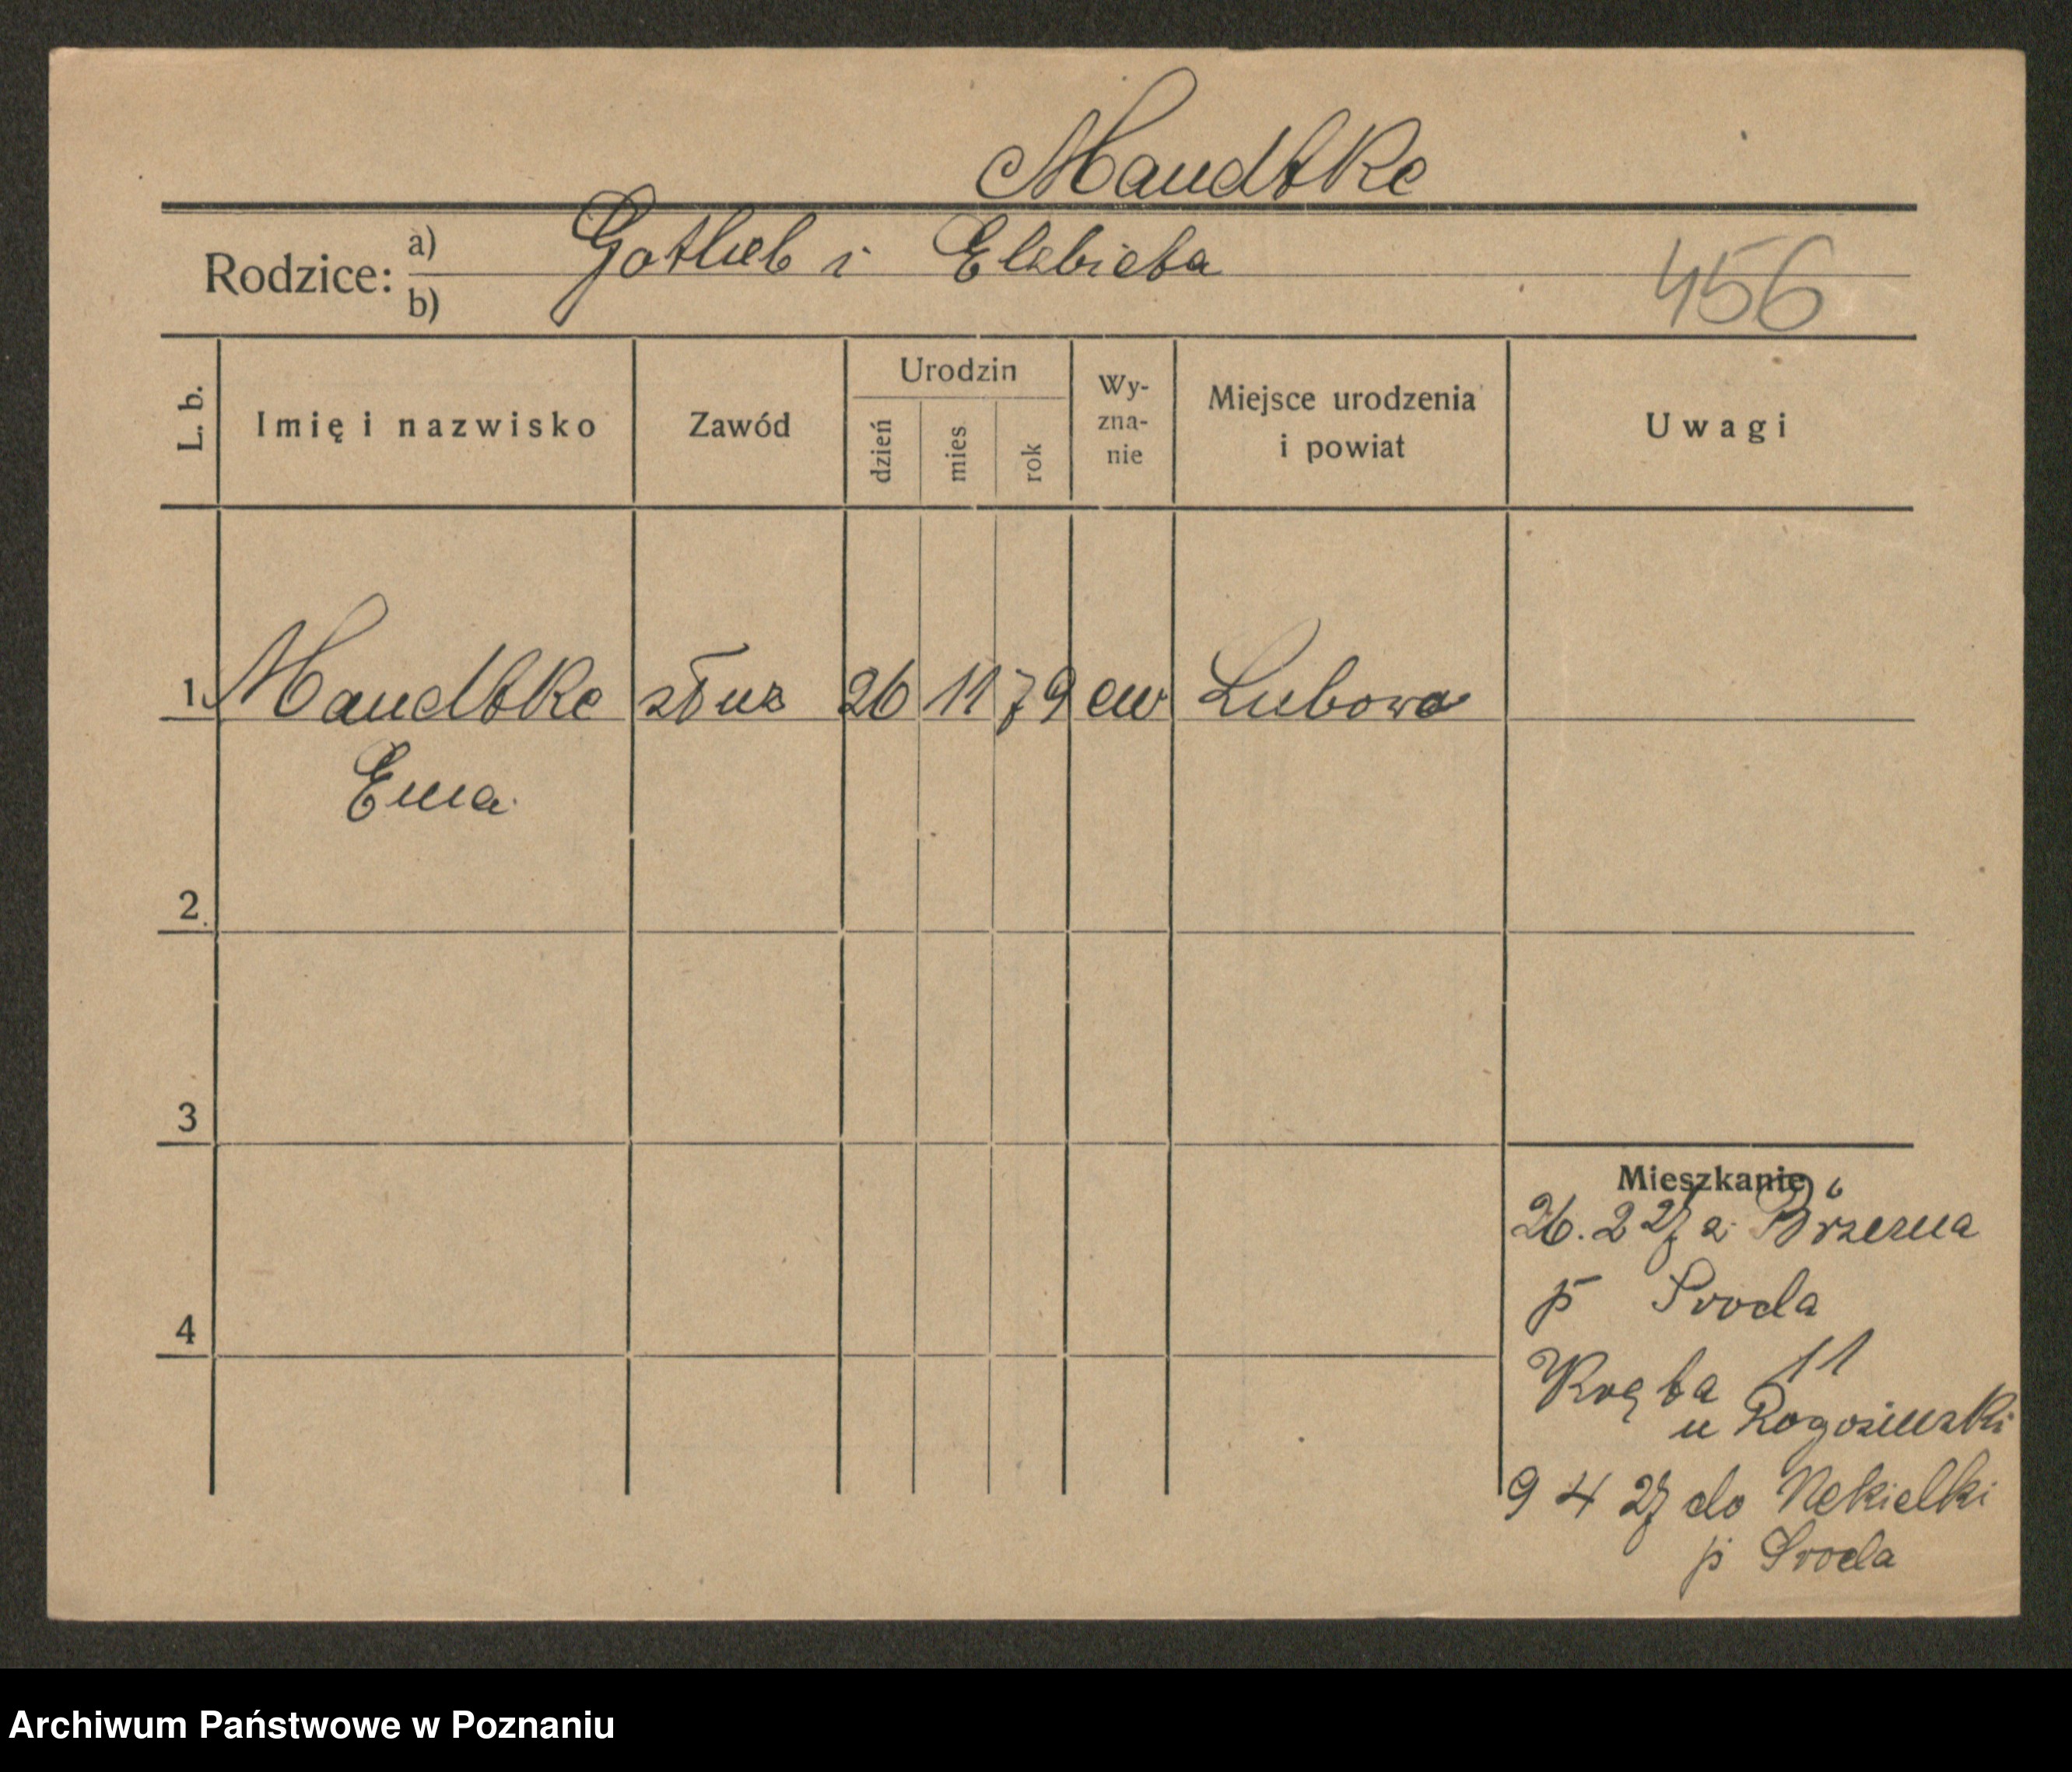 Mandtke
Rodzice: a) Gotlieb i Elzbieta
b)
456
L. b. Imię i nazwisko Zawód Urodzin dzień mies rok Wy-zna-nie Miejsce urodzenia i powiat Uwagi
1. Mandtke służ 26 11 79 ew Lubowo
Ema
2.
3
4
Mieszkanie
26. 2 27 z
p Sroda
Kręta 11
u Rogozinski
9 4 27 do Nekielki
p Sroda
Archiwum Państwowe w Poznaniu